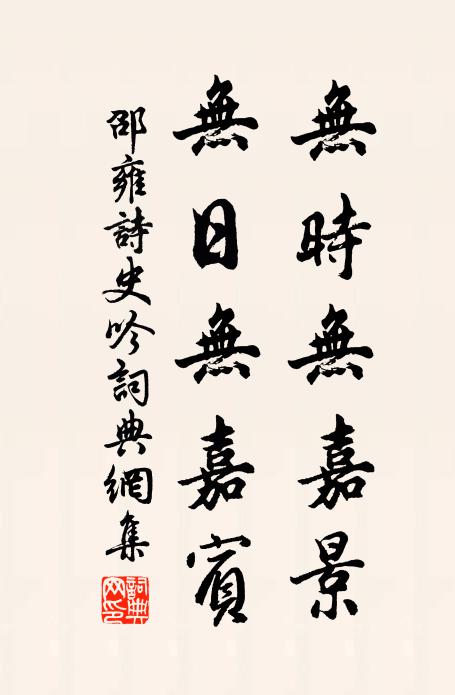 無時無嘉景
無日無嘉賓
邵雍詩史吟詞典網集
詞典網印